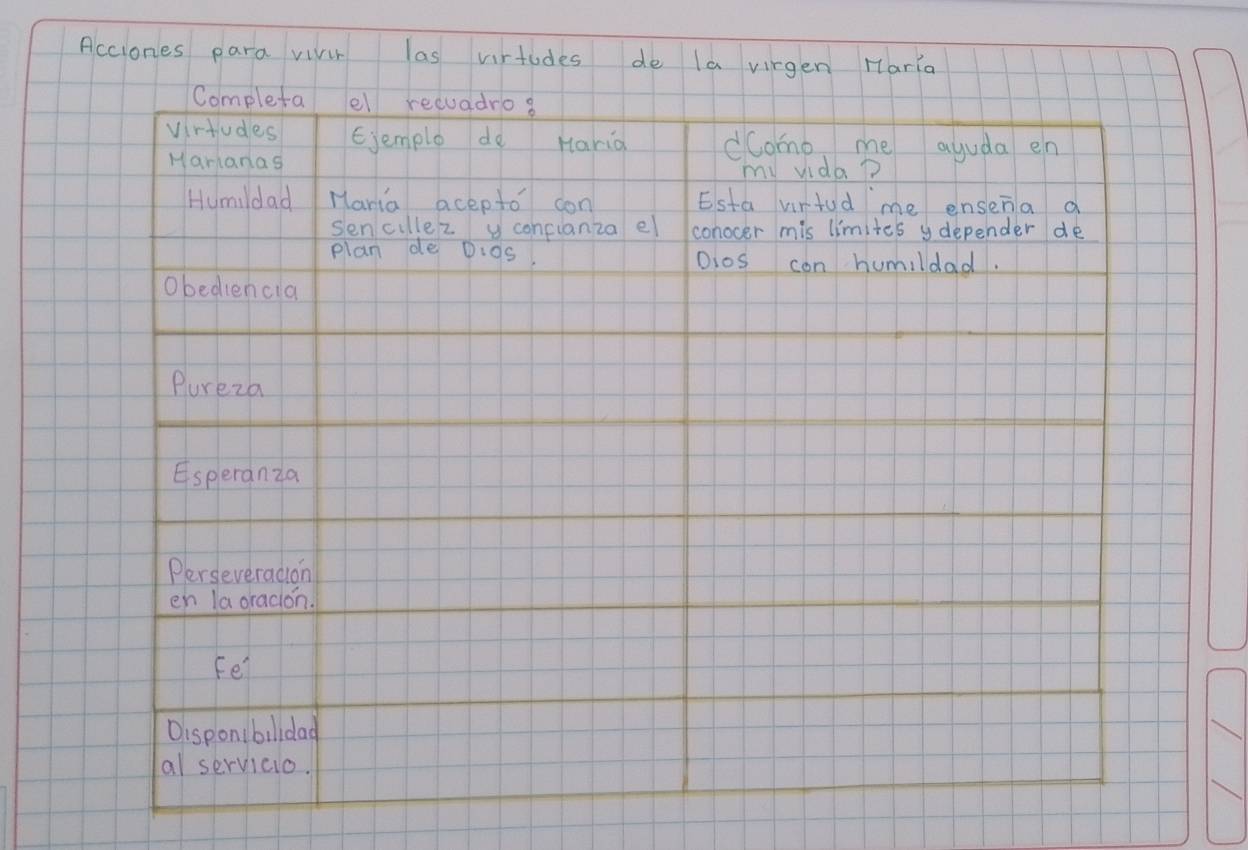 Acciones para vivir las virtudes de la virgen María
Completa el recuadro:
Virtudes Marianas
Ejemplo de María
¿Cómo me ayuda en mi vida?
Humildad
María aceptó con
sencillez y confianza el
plan de Dios.
Esta virtud me enseña a
conocer mis límites y depender de
Dios con humildad.
Obediencia
Pureza
Esperanza
Perseveración
en la oración.
Fé
Disponibilidad
al servicio.